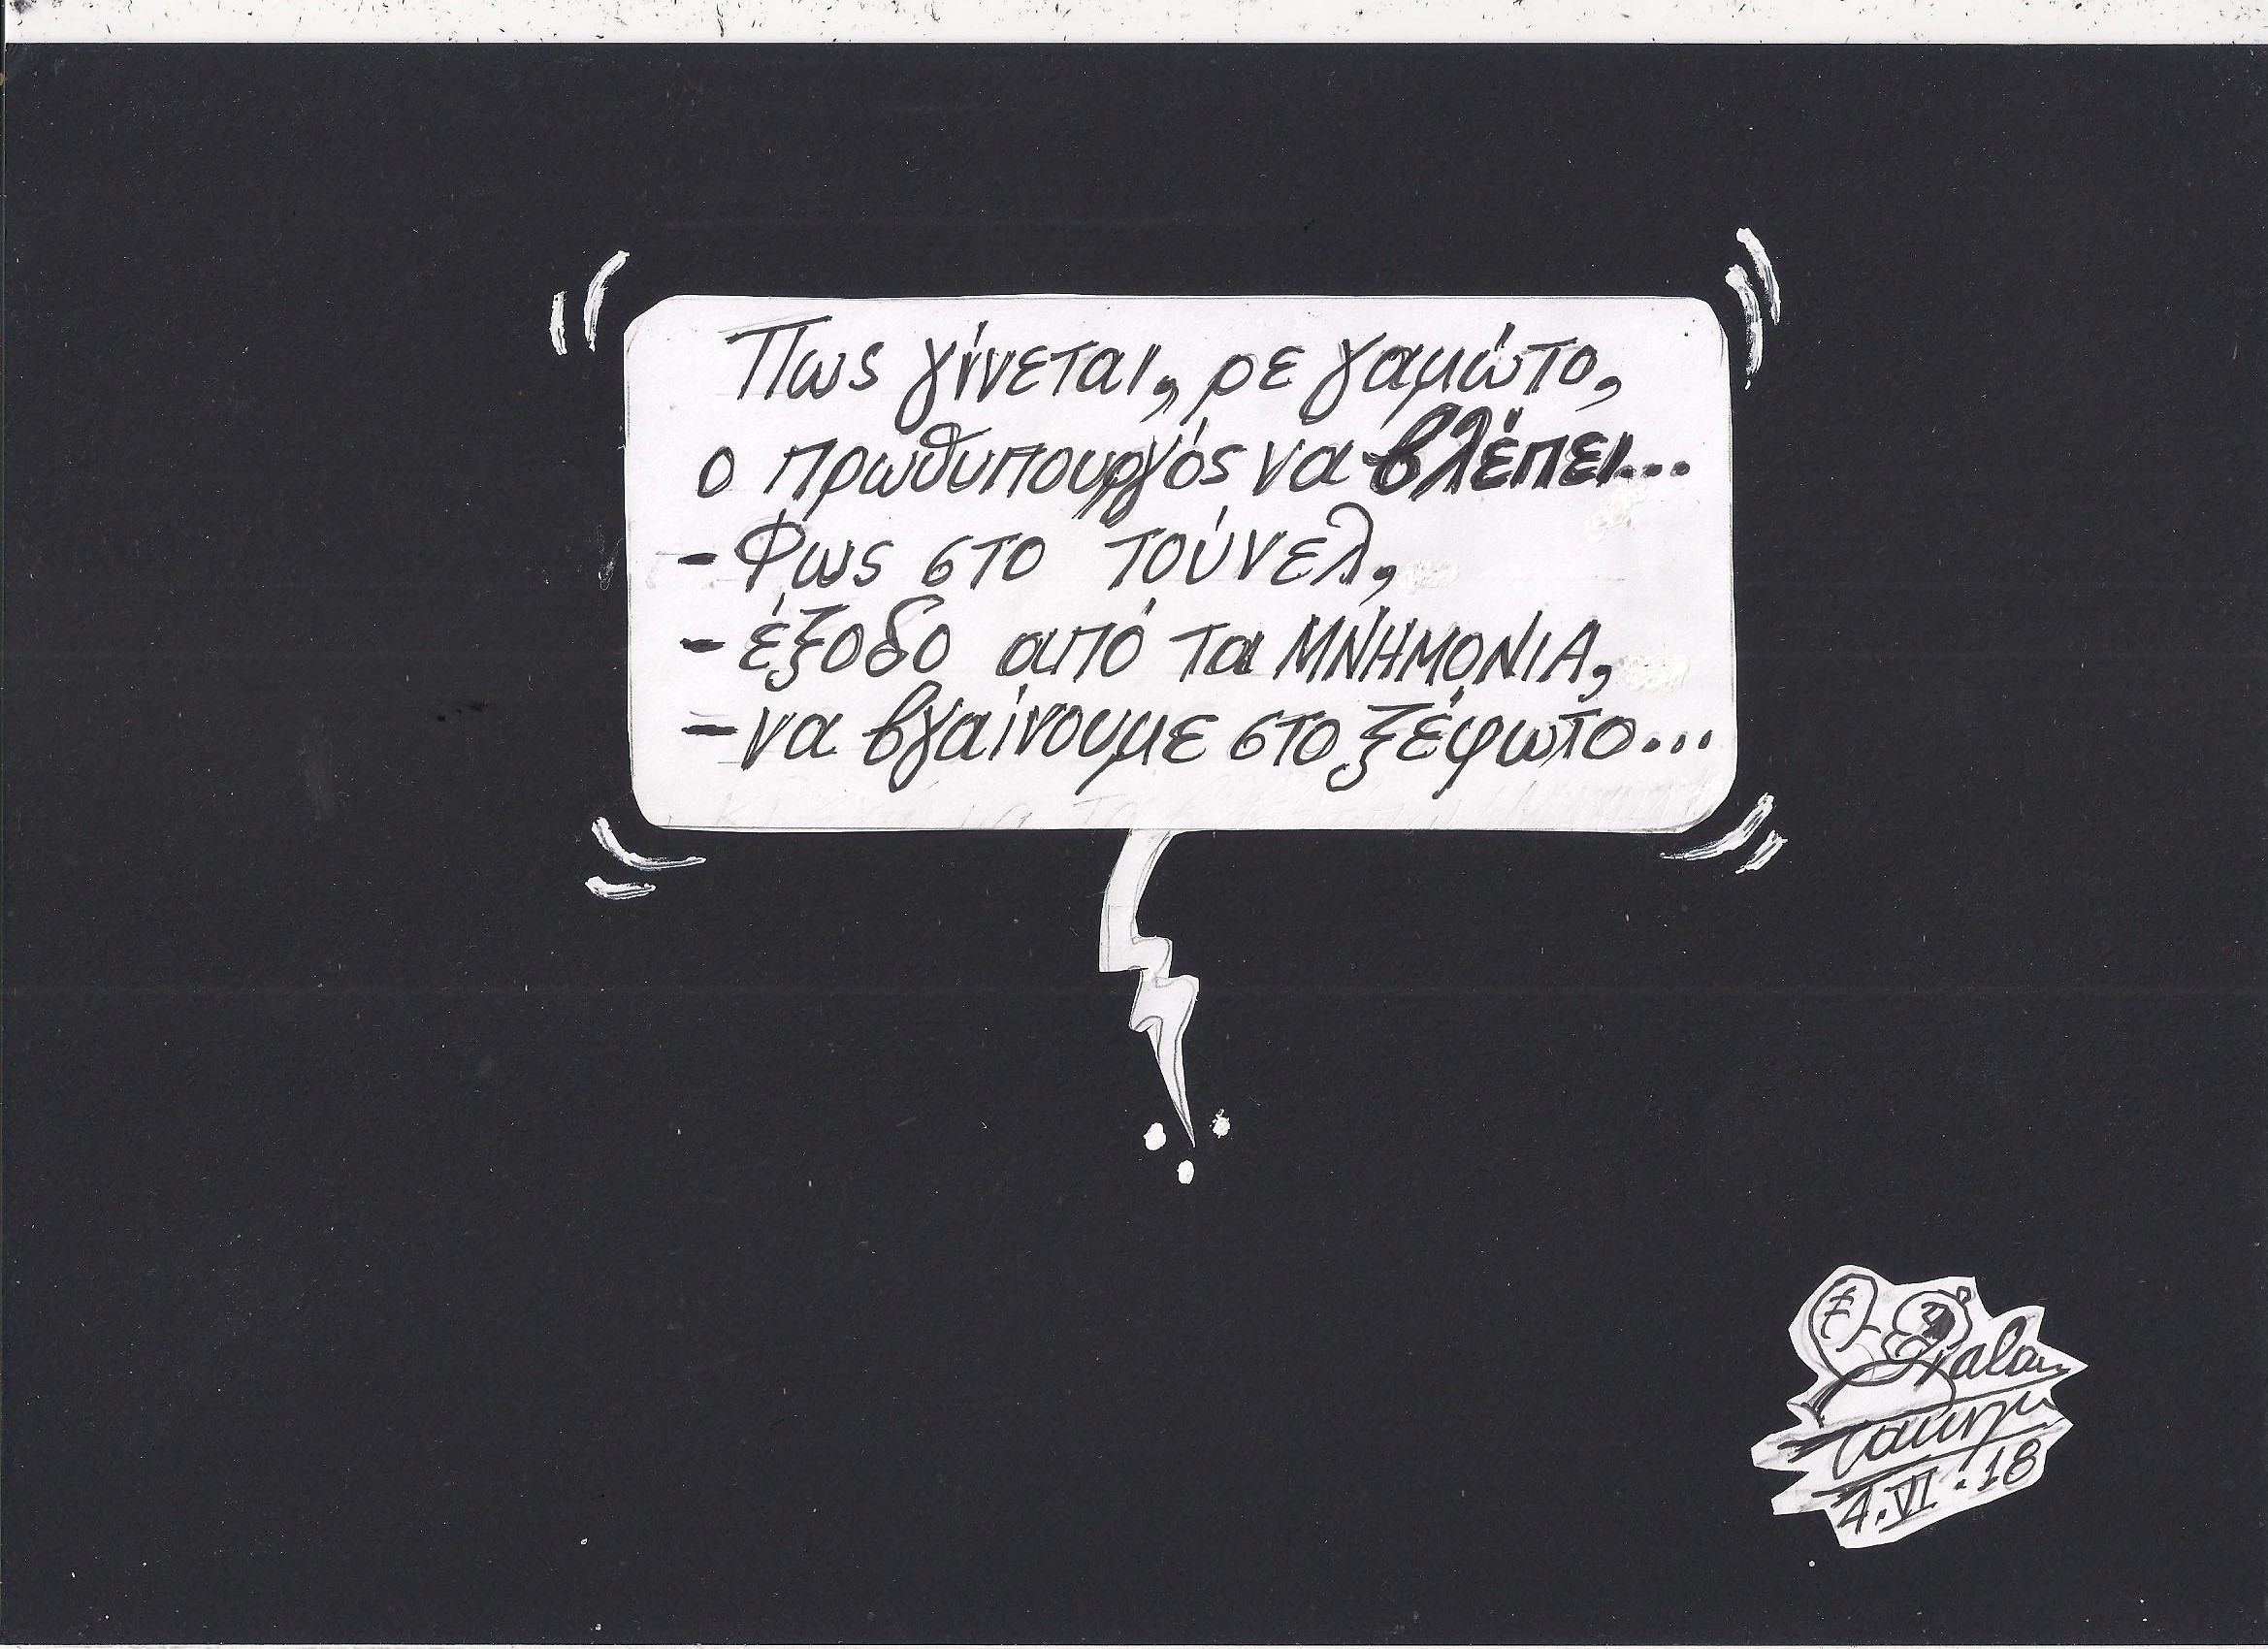 Πως γίνεται, ρε γαμώτο,
ο πρωθυπουργός να βλέπει...
- Φως στο τούνελ,
- έξοδο από τα ΜΝΗΜΟΝΙΑ,
- να βγαίνουμε στο ξέφωτο...
4.VI.18